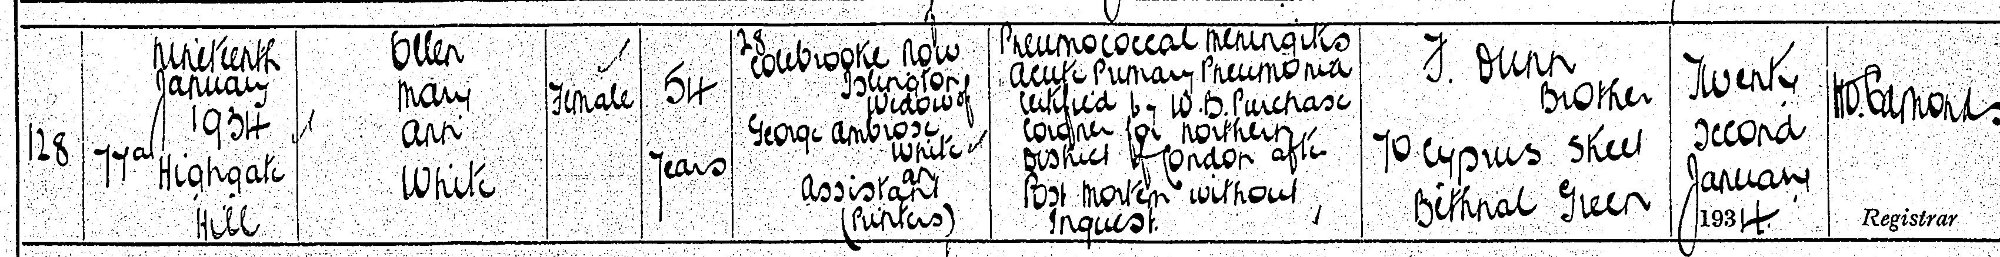 128
Nineteenth
January
1934
77a
Highgate
Hill
Ellen
Mary
Ann
White
Female
54
Years
28
Colebrooke Row
Islington
Widow of
George Ambrose
White
an
Assistant
(Printers)
Pneumococcal Meningitis
Acute Primary Pneumonia
Certified by W.B. Purchase
Coroner for Northern
District of London after
Post Mortem without
Inquest.
F. Dunn
Brother
70 Cyprus Street
Bethnal Green
Twenty
Second
January
1934.
Registrar